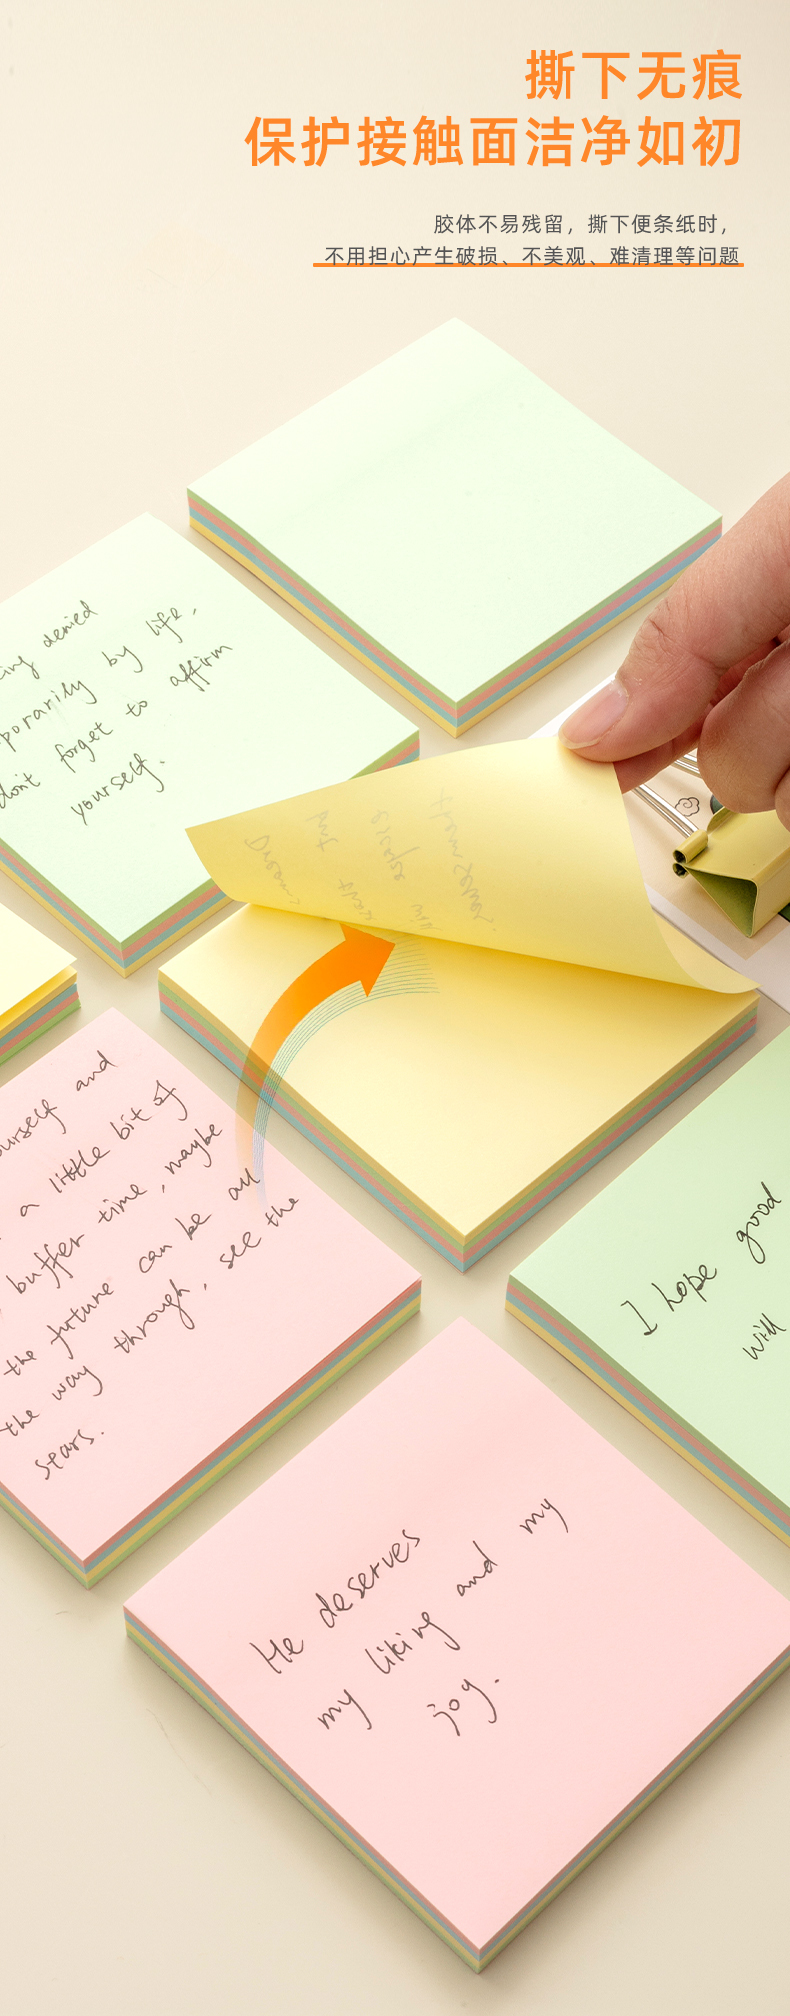 撕下无痕
保护接触面洁净如初
胶体不易残留，撕下便条纸时，
不用担心产生破损、不美观、难清理等问题
denied
by life,
dont forget to affirm
yourself.
and
a little bit of
buffer time, maybe
the future can be all
the way through, see the
stars.
I hope good
will
He deserves
my liking and my
joy.